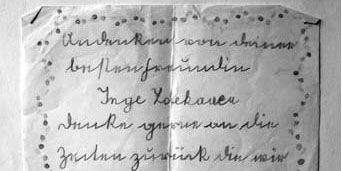 Andenken von deiner
bestenfreundin
Inge
denke gerne an die
Zeiten zurück die wir